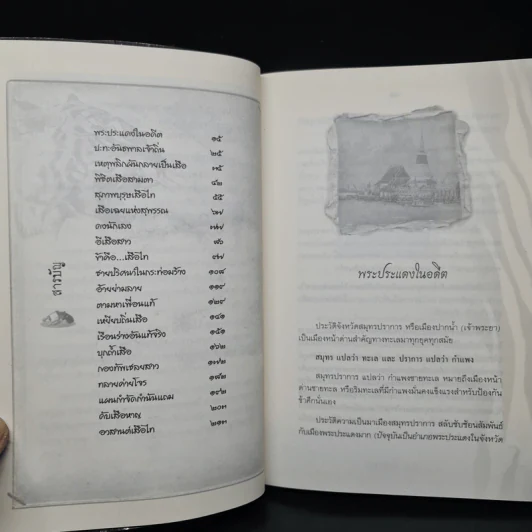 สารบัญ
พระประแดงในอดีต ๑๕
ปะทะอันธพาลเจ้าถิ่น ๒๕
เหตุพลิกผันกลายเป็นเสือ ๓๕
พิชิตเสือสามตา ๔๒
สุภาพบุรุษเสือไท ๕๕
เสือเฉยแห่งสุพรรณ ๖๗
ดงนักเลง ๗๗
อีเสือสาว ๘๖
ข้าคือ...เสือไท ๙๗
ชายปริศนาในกระท่อมร้าง ๑๐๘
อ้ายย่ามลาย ๑๑๙
ตามหาเพื่อนแก้ ๑๒๙
เหยียบถิ่นเสือ ๑๔๑
เรือนร่างอันแท้จริง ๑๕๑
บุกถ้ำเสือ ๑๖๒
กองทัพเชลยสาว ๑๗๒
ทลายค่ายโจร ๑๘๒
แผนกำจัดกำนันแถม ๑๙๒
ดับเสือหาญ ๒๐๓
อวสานต์เสือไท ๒๑๓
พระประแดงในอดีต
ประวัติจังหวัดสมุทรปราการ หรือเมืองปากน้ำ (เจ้าพระยา)
เป็นเมืองหน้าด่านสำคัญทางทะเลมาทุกยุคทุกสมัย
สมุทร แปลว่า ทะเล และ ปราการ แปลว่า กำแพง
สมุทรปราการ แปลว่า กำแพงชายทะเล หมายถึงเมืองหน้า
ด่านชายทะเล หรือริมทะเลที่มีกำแพงมั่นคงแข็งแรงสำหรับป้องกัน
ข้าศึกนั่นเอง
ประวัติความเป็นมาเมืองสมุทรปราการ สลับซับซ้อนสัมพันธ์
กับเมืองพระประแดงมาก (ปัจจุบันเป็นอำเภอพระประแดงในจังหวัด